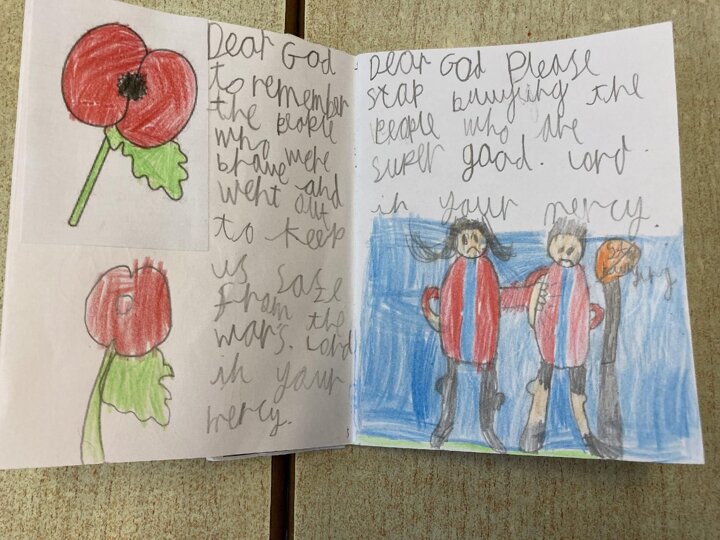 Dear God
to remember
the people
who were
brave and
went out
to keep
us safe
from
wars. the
Lord
in your
mercy.
Dear God Please
stop buuysing the
people who are
super good. Lord.
in your mercy.
Stop